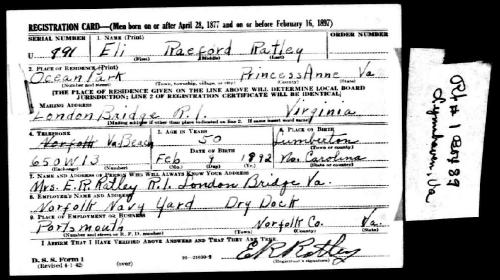 REGISTRATION CARD—(Men born on or after April 28, 1877 and on or before February 16, 1897)
SERIAL NUMBER
1. NAME (Print)
ORDER NUMBER
U 991
Eli Raeford Ratley
(First) (Middle) (Last)
2. PLACE OF RESIDENCE (Print)
Ocean Park Princess Anne Va.
(Number and street) (Town, township, village, or city) (County) (State)
[THE PLACE OF RESIDENCE GIVEN ON THE LINE ABOVE WILL DETERMINE LOCAL BOARD
JURISDICTION; LINE 2 OF REGISTRATION CERTIFICATE WILL BE IDENTICAL]
3. MAILING ADDRESS
London Bridge R.1. Virginia
(Mailing address if other than place indicated on line 2. If same insert word same)
4. TELEPHONE
5. AGE IN YEARS
6. PLACE OF BIRTH
Norfolk Va. Beach
50
Lumberton
DATE OF BIRTH
(Town or county)
650W13
Feb. 9 1892
No. Carolina
(Exchange) (Number)
(Mo.) (Day) (Yr.)
(State or country)
7. NAME AND ADDRESS OF PERSON WHO WILL ALWAYS KNOW YOUR ADDRESS
Mrs. E.R. Ratley R.1. London Bridge Va.
8. EMPLOYER'S NAME AND ADDRESS
Norfolk Navy Yard Dry Dock
9. PLACE OF EMPLOYMENT OR BUSINESS
Portsmouth Norfolk Co. Va.
(Number and street or R. F. D. number) (Town) (County) (State)
I AFFIRM THAT I HAVE VERIFIED ABOVE ANSWERS AND THAT THEY ARE TRUE.
D. S. S. Form 1
(Revised 4-1-42) (over)
E R Ratley
(Registrant's signature)
Rt # 1 Box 89
Lynnhaven, Va